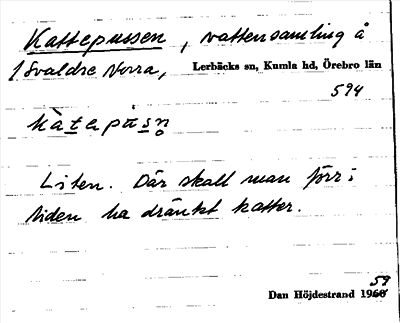 Kattepussen, vattensamling å
1 Svaldre Norra, Lerbäcks sn, Kumla hd, Örebro län
594
Liten. Där skall man förr i
tiden ha dränkt katter.
59
Dan Höjdestrand 1960